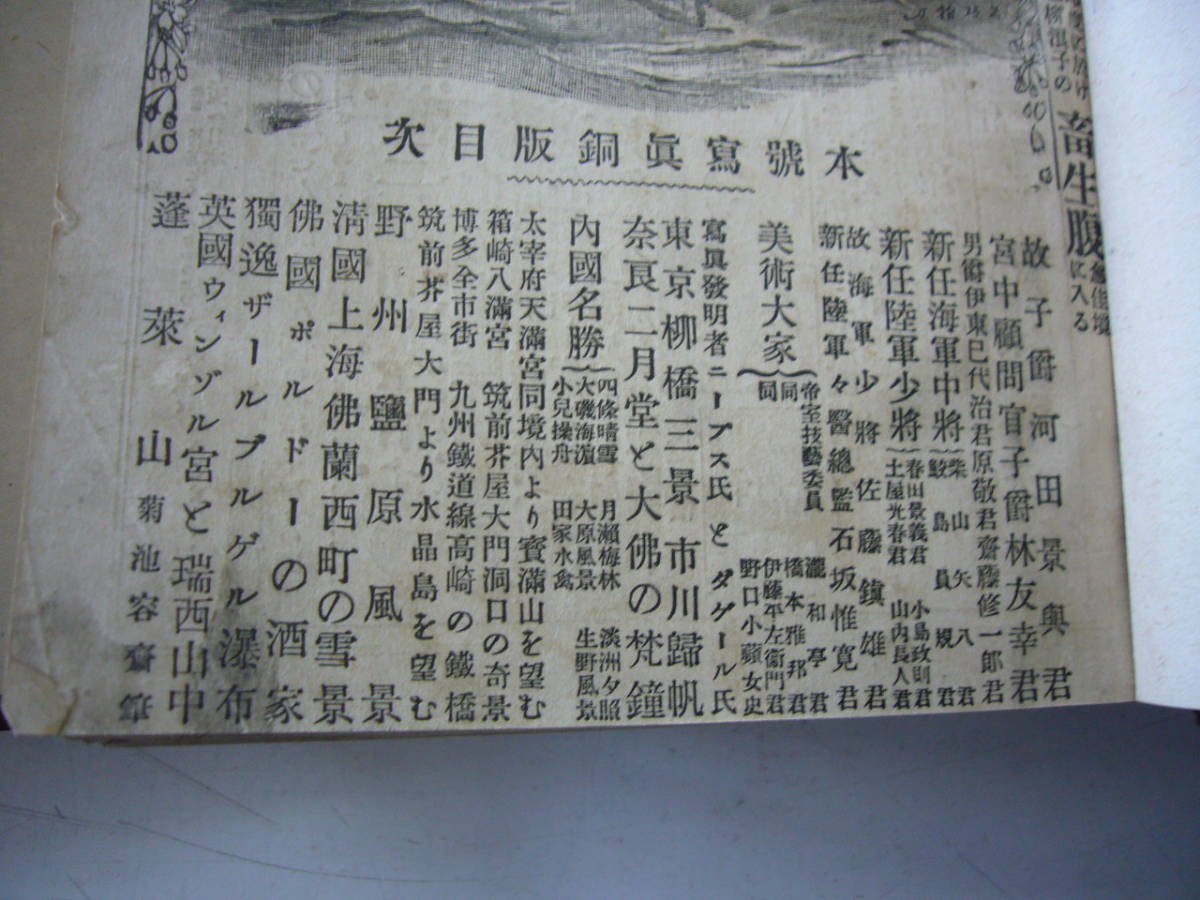 畜生腹
に入る
本號寫眞銅版目次
故子爵河田景與君
宮中顧問官子爵林友幸君
男爵伊東巳代治君原敬君齋藤修一郎君
新任海軍中將 柴山矢八君
鮫島員規君
新任陸軍少將 春田景義君 小島政則君
土屋光春君 山内長人君
故海軍少將佐藤鎮雄君
新任陸軍々醫總監石坂惟寛君
美術大家 帝室技藝委員 瀧和亭君
同 橋本雅邦君
同 伊藤平左衛門君
野口小蘋女史
寫眞發明者ニープス氏とダゲール氏
東京柳橋三景 市川歸帆
奈良二月堂と大佛の梵鐘
内國名勝 四條晴雪 月瀬梅林 淡洲夕照
大磯海濱 大原風景 生野風景
小兒操舟 田家水禽
太宰府天滿宮同境内より寶滿山を望む
箱崎八滿宮 筑前芥屋大門洞口の奇景
博多全市街 九州鐵道線高崎の鐵橋
筑前芥屋大門より水晶島を望む
野州鹽原風景
清國上海佛蘭西町の雪景
佛國ボルドーの酒家
獨逸ザールブルゲル瀑布
英國ウィンゾル宮と瑞西山中
蓬萊山 菊池容齋筆